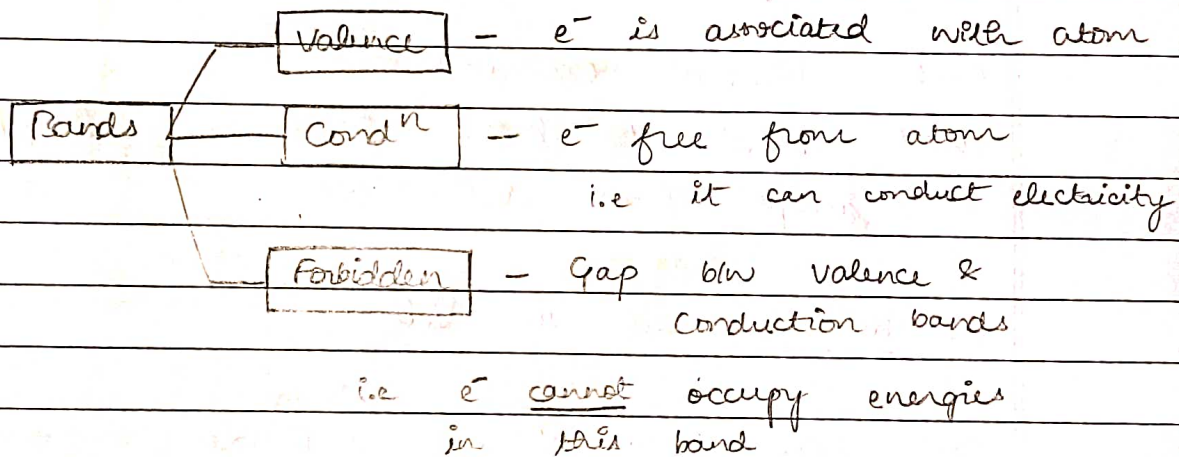 Valence - e⁻ is associated with atom
Bands Condⁿ - e⁻ free from atom
i.e it can conduct electricity
Forbidden - Gap b/w valence &
Conduction bands
i.e e⁻ cannot occupy energies
in this band